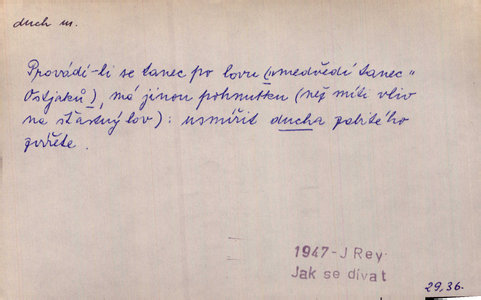 duch m.
Provádí-li se tanec po lovu („medvědí tanec"
Ostjaků), má jinou pohnutku (než míti vliv
na šťastný lov): usmířit ducha zabitého
zvířete.
1947-J Rey
Jak se dívat
29,36.